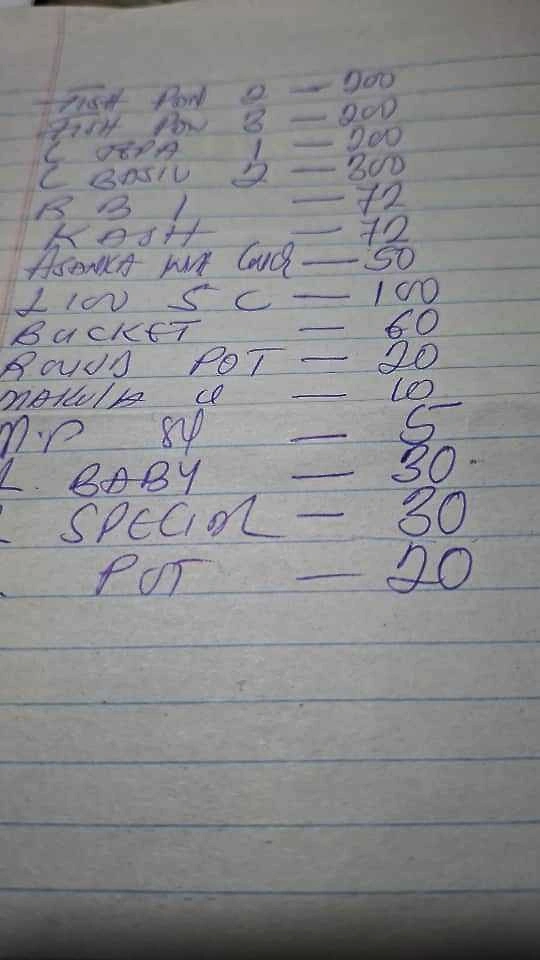 FISH PAN 2 — 200
FISH PAN 3 — 200
C 1 — 200
C BASIN 2 — 300
R B 1 — 72
KASH — 72
ASANKA — 50
LION S C — 100
BUCKET — 60
ROUND POT — 20
4 — 10
M.P 84 — 5
L. BABY — 30
L SPECIAL — 30
POT — 20